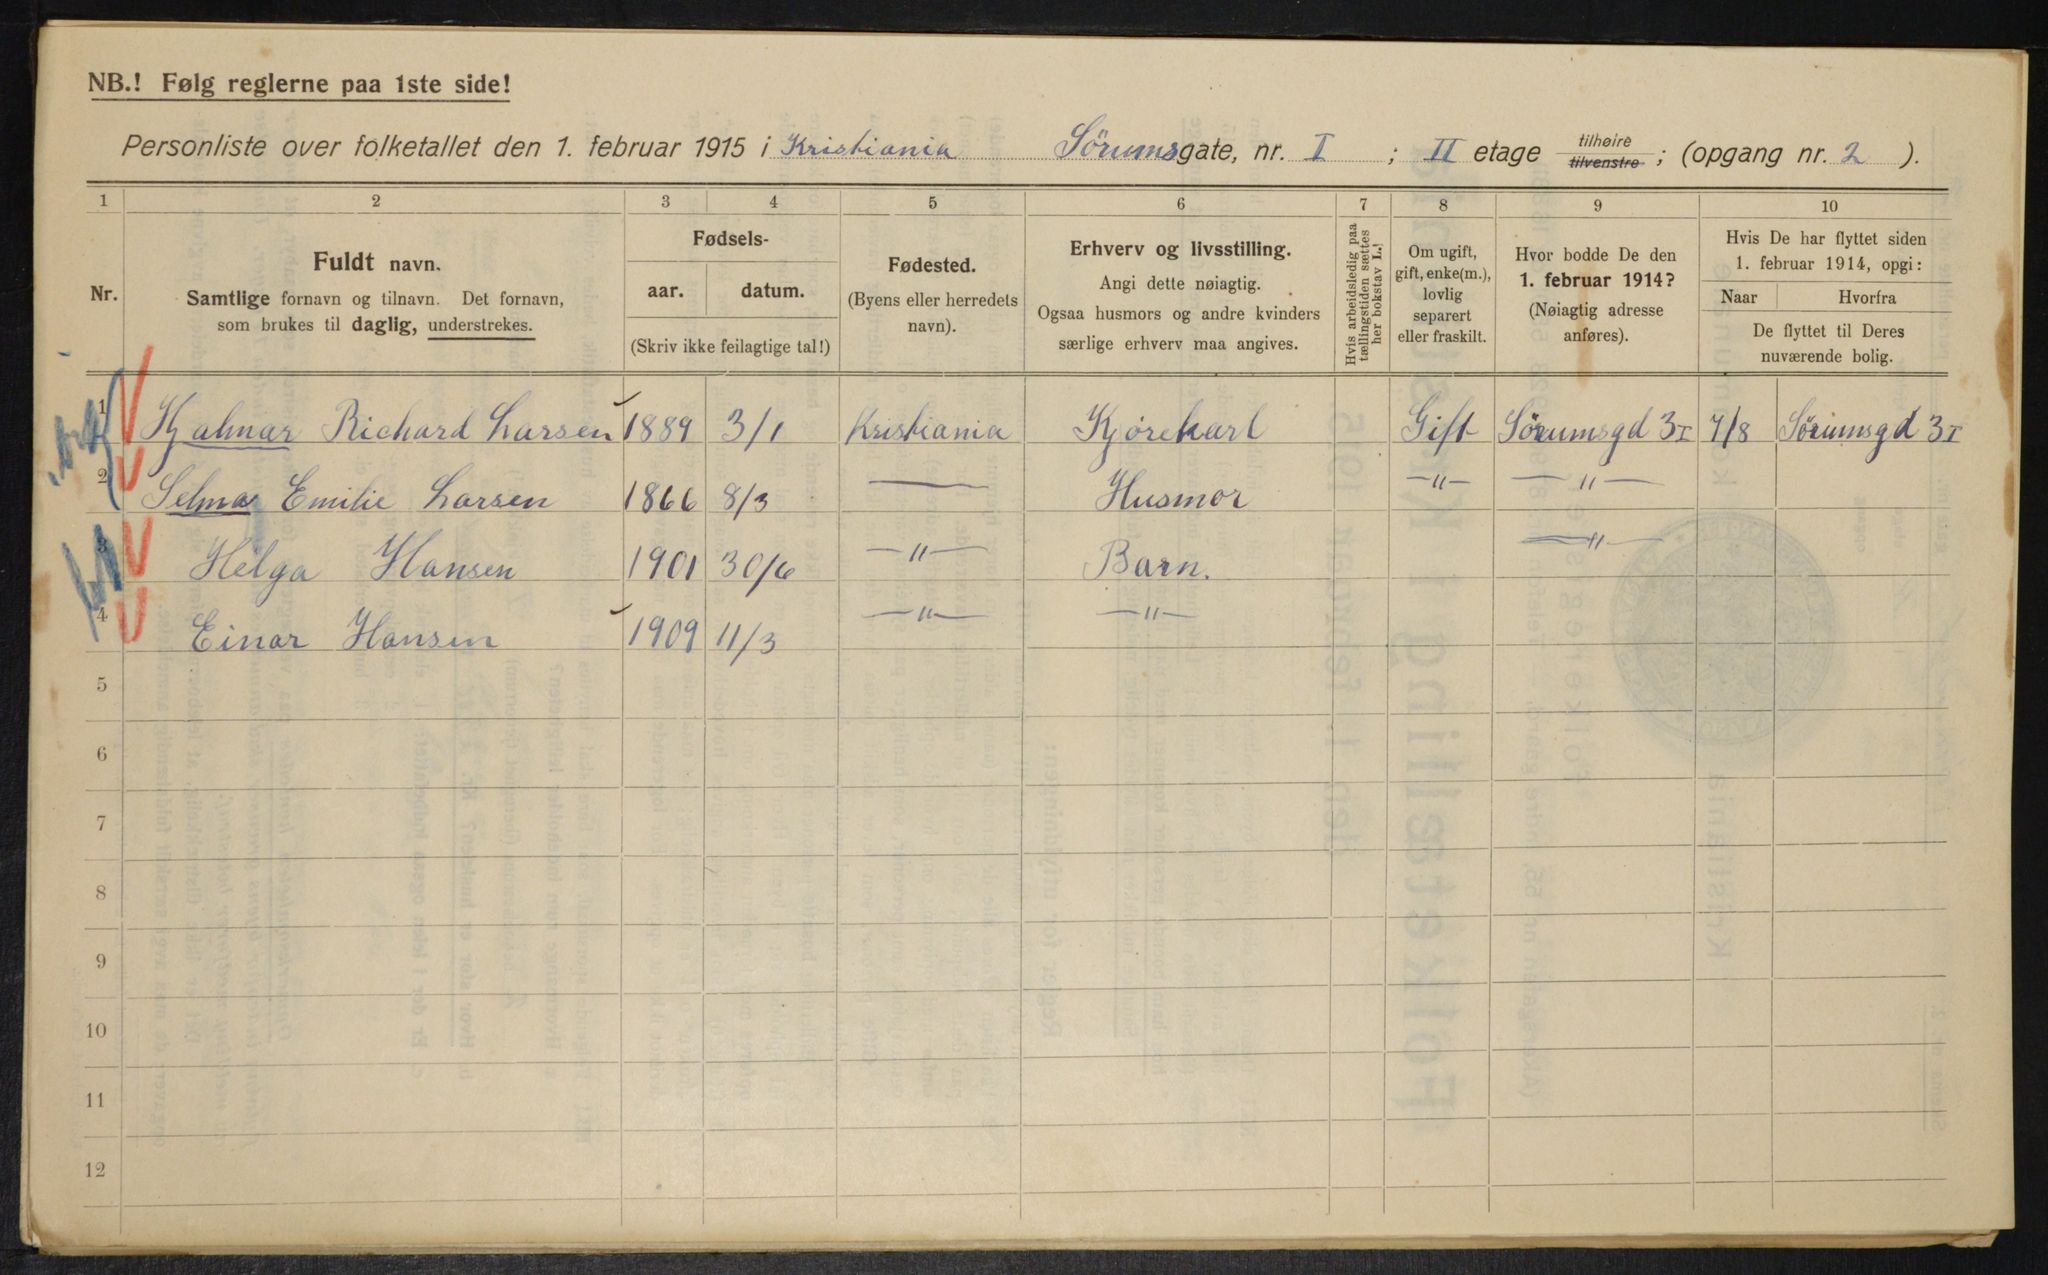 NB.! Følg reglerne paa 1ste side!
Personliste over folketallet den 1. februar 1915 i Kristiania Sörumsgate, nr. I ; II etage tilhøire tilvenstre ; (opgang nr. 2 ).
1 2 3 4 5 6 7 8 9 10
Nr.
Fuldt navn.
Samtlige fornavn og tilnavn. Det fornavn,
som brukes til daglig, understrekes.
Fødsels-
aar. datum.
(Skriv ikke feilagtige tal!)
Fødested.
(Byens eller herredets
navn).
Erhverv og livsstilling.
Angi dette nøiagtig.
Ogsaa husmors og andre kvinders
særlige erhverv maa angives.
Hvis arbeidsledig paa
tællingstiden sættes
her bokstav L.!
Om ugift,
gift, enke(m.),
lovlig
separert
eller fraskilt.
Hvor bodde De den
1. februar 1914?
(Nøiagtig adresse
anføres).
Hvis De har flyttet siden
1. februar 1914, opgi:
Naar Hvorfra
De flyttet til Deres
nuværende bolig.
1 Hjalmar Richard Larsen 1889 3/1 Kristiania Kjörekarl Gift Sörumsgd 3 I 7/8 Sörumsgd 3 I
2 Selma Emilie Larsen 1866 8/3 — Husmor —"— —"—
3 Helga Hansen 1901 30/6 —"— Barn. —"—
4 Einar Hansen 1909 11/3 —"— —"—
5
6
7
8
9
10
11
12